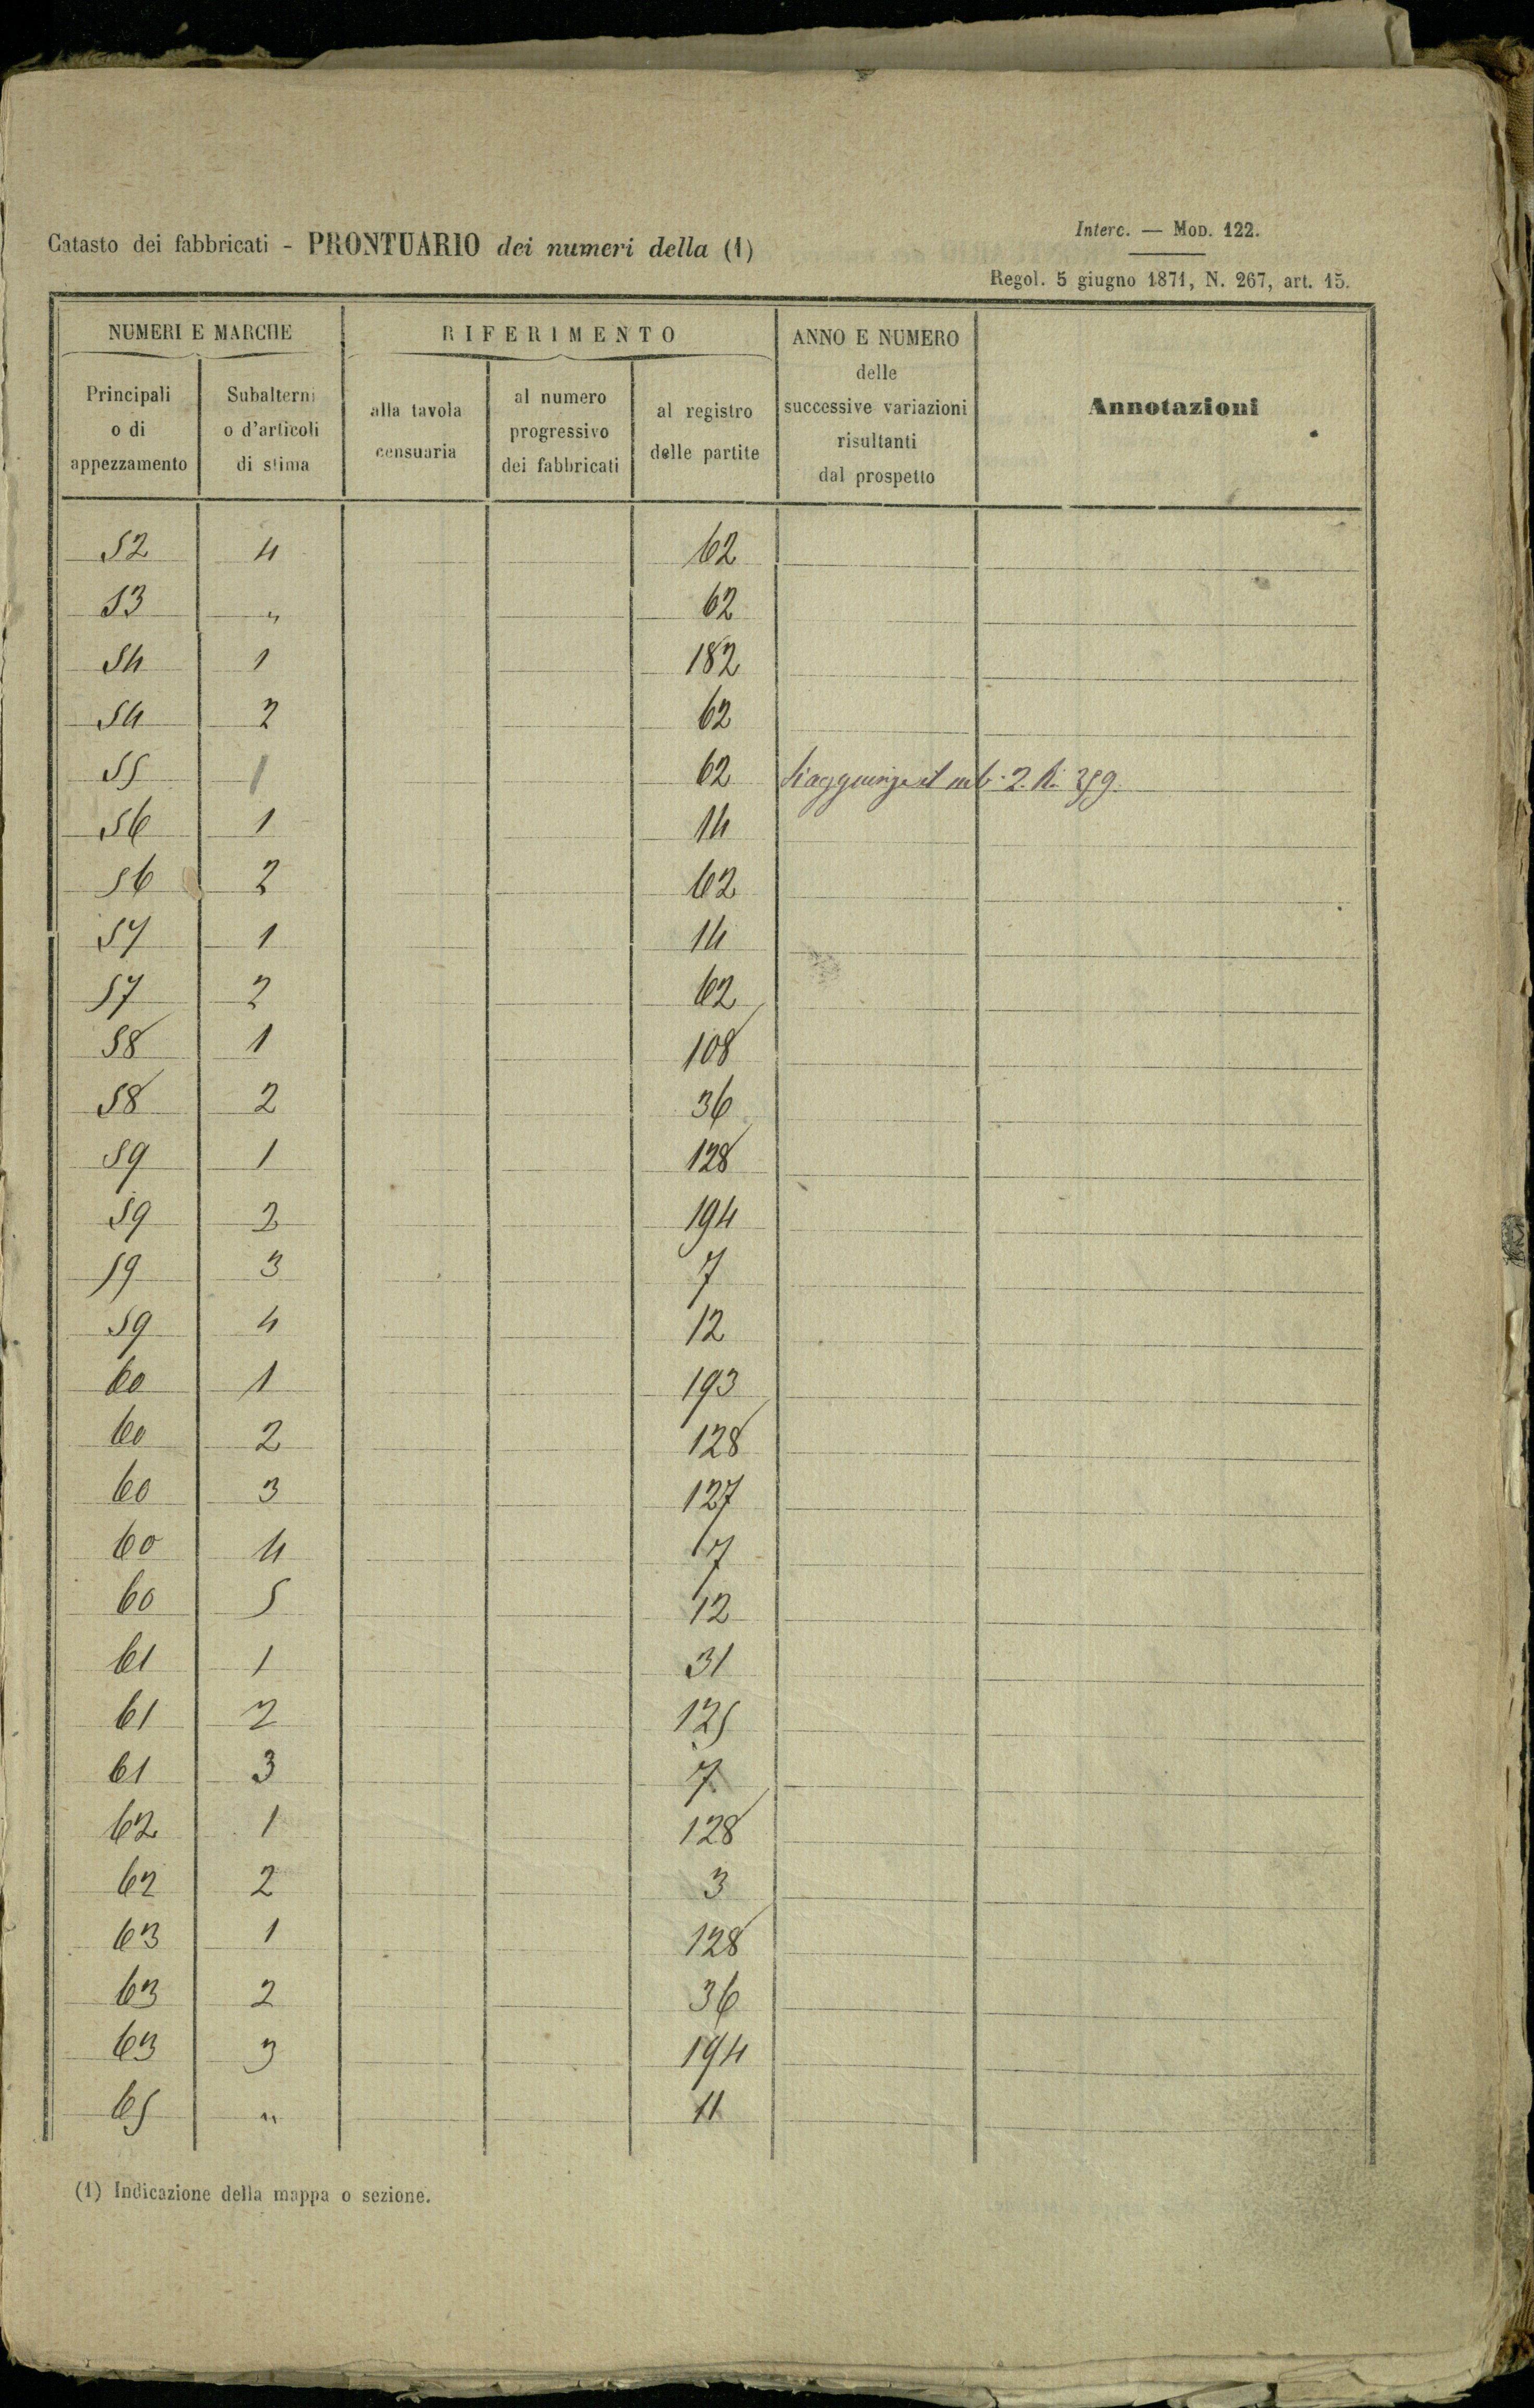 Catasto dei fabbricati - PRONTUARIO dei numeri della (1)
Interc. — Mod. 122.
Regol. 5 giugno 1871, N. 267, art. 15.
NUMERI E MARCHE
RIFERIMENTO
ANNO E NUMERO
delle
successive variazioni
risultanti
dal prospetto
Annotazioni
Principali
o di
appezzamento
Subalterni
o d'articoli
di stima
alla tavola
censuaria
al numero
progressivo
dei fabbricati
al registro
delle partite
52 4 62
53 " 62
54 1 182
54 2 62
55 1 62 Si aggiunge il sub. 2.
56 1 14
56 2 62
57 1 14
57 2 62
58 1 108
58 2 36
59 1 128
59 2 194
59 3 7
59 4 12
60 1 193
60 2 128
60 3 127
60 4 7
60 5 12
61 1 31
61 2 125
61 3 7
62 1 128
62 2 3
63 1 128
63 2 36
63 3 194
65 " 11
(1) Indicazione della mappa o sezione.